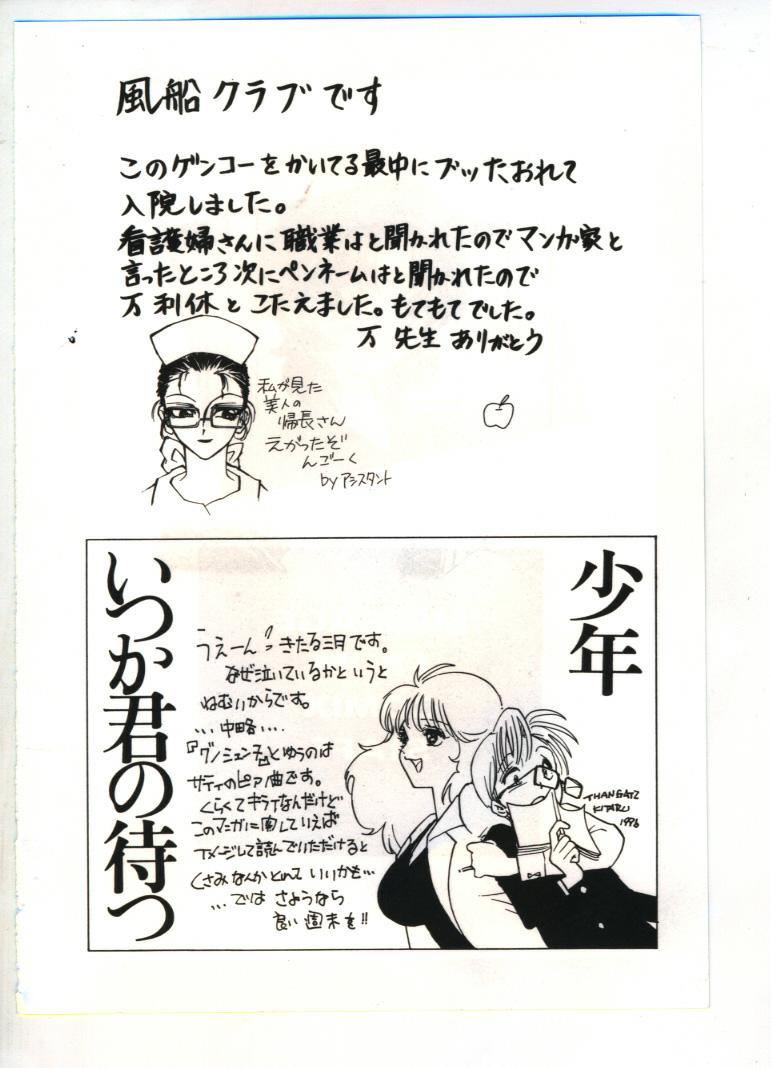 風船クラブです
このゲンコーをかいてる最中にブッたおれて
入院しました。
看護婦さんに職業はと聞かれたのでマンガ家と
言ったところ次にペンネームはと聞かれたので
万利休とこたえました。もてもてでした。
万先生ありがとう
私が見た
美人の
帰長さん
えがったぞ
んごーく
byアシスタント
少年
いつか君の待つ
うえーん!!きたる三月です。
なぜ泣いているかというと
ねむいからです。
...中略...
『グノシェンヌ』とゆうのは
サティのピアノ曲です。
くらくてキライなんだけど
このマンガに関していえば
イメージして読んでいただけると
くさみなんかとれて いいかも...
...では さようなら
良い週末を!!
KITARU
1996